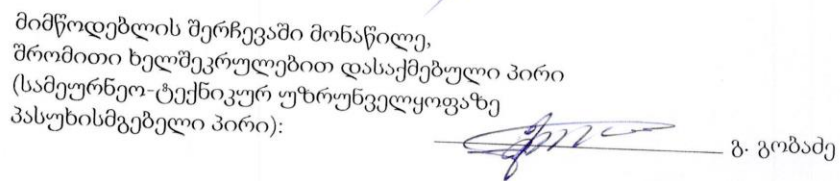 მიმწოდებლის შერჩევაში მონაწილე,
შრომითი ხელშეკრულებით დასაქმებული პირი
(სამეურნეო-ტექნიკურ უზრუნველყოფაზე
პასუხისმგებელი პირი):
გ. გობაძე